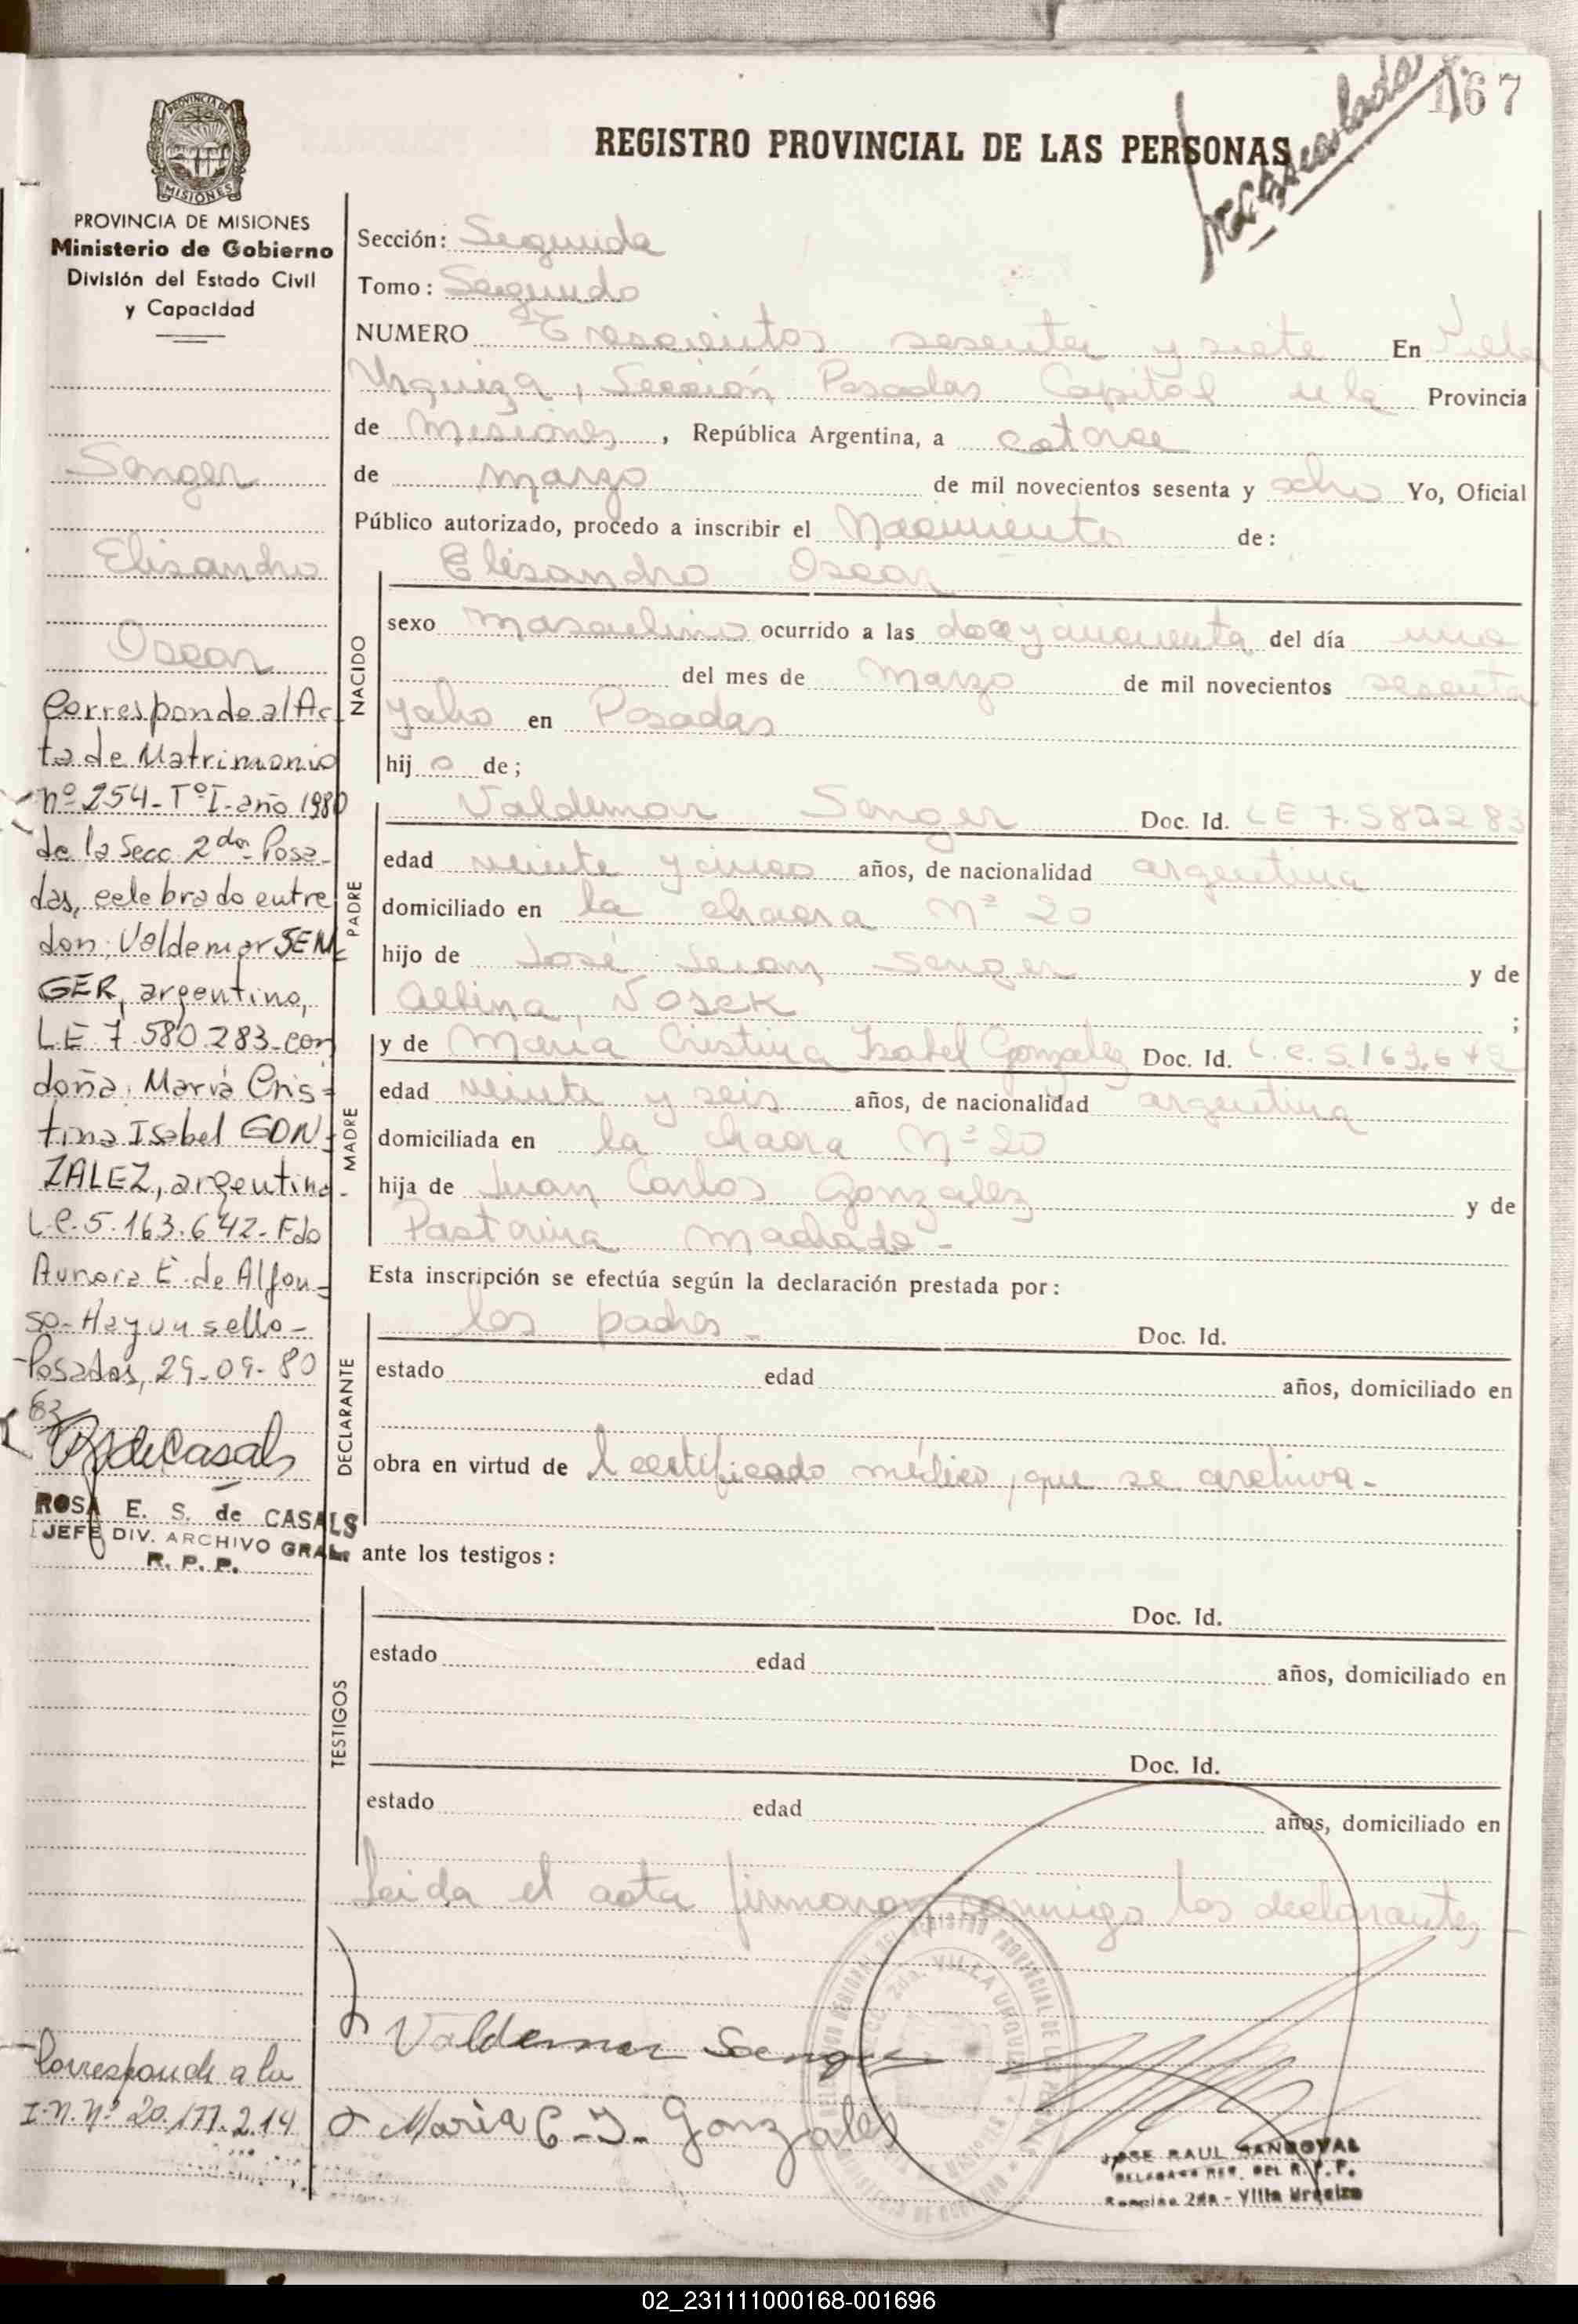 167
Macrocolada
PROVINCIA DE MISIONES
PROVINCIA DE MISIONES
Ministerio de Gobierno
División del Estado Civil
y Capacidad
REGISTRO PROVINCIAL DE LAS PERSONAS
Sección: Segunda
Tomo: Segundo
NUMERO Trescientos sesenta y siete En Villa
Urquiza, Sección Posadas Capital de la Provincia
de Misiones, República Argentina, a catorce
de marzo de mil novecientos sesenta y ocho Yo, Oficial
Público autorizado, procedo a inscribir el Nacimiento de:
NACIDO
Elisandro Oscar
sexo masculino ocurrido a las doce y cincuenta del día uno
del mes de marzo de mil novecientos sesenta
y ocho en Posadas
hij o de;
PADRE
Valdemar Senger Doc. Id. LE 7.580.283
edad veinte y cinco años, de nacionalidad argentina
domiciliado en la chacra Nº 20
hijo de José Senger y de
Albina, Nosek ;
MADRE
y de María Cristina Isabel Gonzalez Doc. Id. L.C. 5.163.642
edad veinte y seis años, de nacionalidad argentina
domiciliada en la chacra Nº 20
hija de Juan Carlos Gonzalez y de
Pastorina Machado -
Esta inscripción se efectúa según la declaración prestada por:
DECLARANTE
los padres - Doc. Id.
estado edad años, domiciliado en
obra en virtud de l certificado médico, que se archiva -
ante los testigos:
TESTIGOS
Doc. Id.
estado edad años, domiciliado en
Doc. Id.
estado edad años, domiciliado en
Leida el acta firmaron conmigo los declarantes -
Valdemar Senger
Maria C. I. Gonzalez
JOSE RAUL SANDOVAL
DELEGADO REG. DEL R.P.P.
Sección 2da - Villa Urquiza
Senger
Elisandro
Oscar
Corresponde al Ac-
ta de Matrimonio
nº 254-TºI-año 1980
de la Secc 2da- Posa-
das, celebrado entre
don: Valdemar SEN-
GER, argentino,
L.E 7.580.283-con
doña: María Cris-
tina Isabel GON-
ZALEZ, argentina-
L.C. 5.163.642- Fdo
Aurora E. de Alfon-
so-Hay un sello-
Posadas, 29-09-80
83
RdeCasals
ROSA E. S. de CASALS
JEFE DIV. ARCHIVO GRAL.
R. P. P.
Corresponde a la
I.N.Nº 20.177.214
02_231111000168-001696